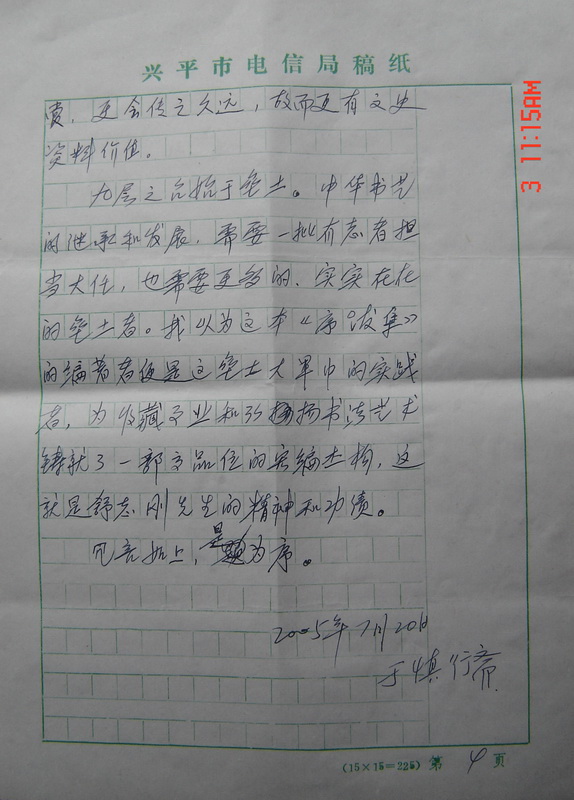 兴平市电信局稿纸
贵，更会传之久远，故而更有文史
资料价值。
九层之台始于垒土。中华书艺
的继承和发展，需要一批有志者担
当大任，也需要更多的、实实在在
的垒土者。我以为这本《序跋集》
的编著者便是这垒土大军中的实践
者，为收藏事业和弘扬书法艺术
铸就了一部高品位的宏编杰构，这
就是舒志刚先生的精神和功绩。
冗言如上，是为序。
2005年7月20日
于慎行斋
(15×15=225) 第 4 页
3 11:15AM